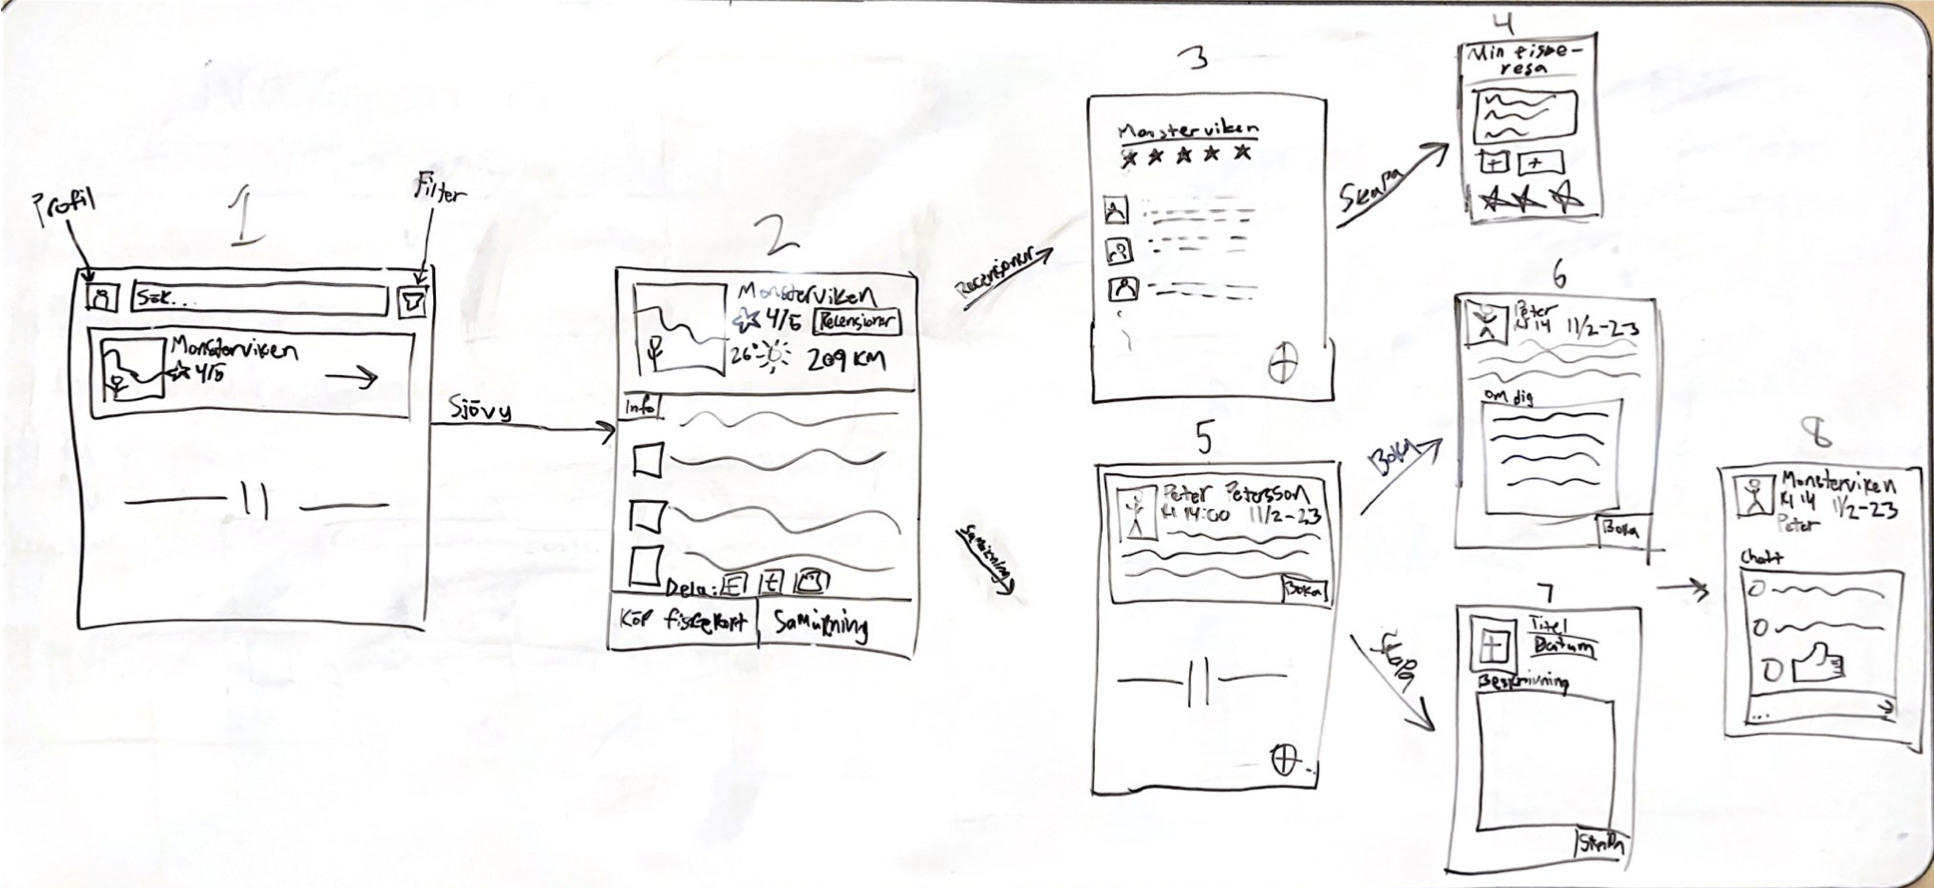 1
Profil
Filter
Sök...
Monsterviken
4/5
Sjövy
2
Monsterviken
4/5 Recensioner
26° 209 KM
Info
Dela: F t
Köp fiskekort
Samåkning
Recensioner
Samåkning
3
Monsterviken
Skapa
4
Min fiske-
resa
5
Peter Petersson
Kl 14:00 11/2-23
Boka
Boka
Skapa
6
Peter
Kl 14 11/2-23
Om dig
Boka
7
Titel
Datum
Beskrivning
Skapa
8
Monsterviken
Kl 14 11/2-23
Peter
Chatt
...